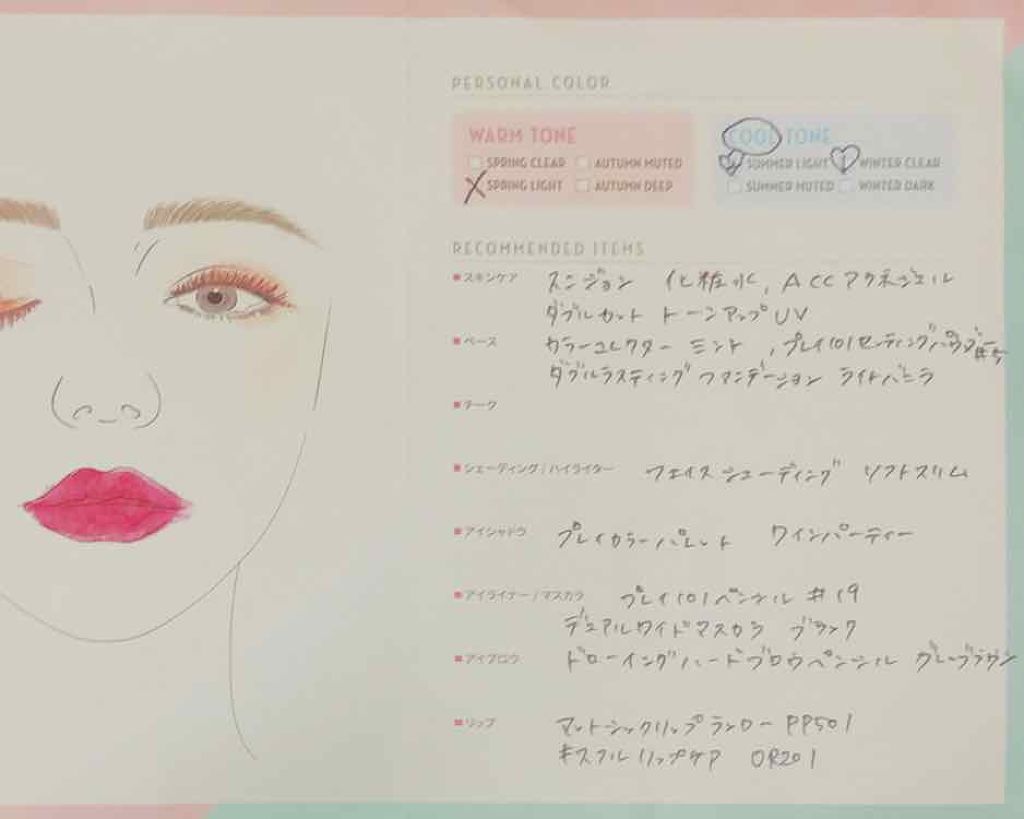 PERSONAL COLOR
WARM TONE
SPRING CLEAR AUTUMN MUTED
SPRING LIGHT AUTUMN DEEP
COOL TONE
SUMMER LIGHT WINTER CLEAR
SUMMER MUTED WINTER DARK
RECOMMENDED ITEMS
スキンケア スンジョン 化粧水, ACCアクネジェル
ダブルカット トーンアップUV
ベース カラーコレクター ミント, プレイ101セッティングパウダー
ダブルラスティング ファンデーション ライトバニラ
チーク
シェーディング/ハイライター フェイスシェーディング ソフトスリム
アイシャドウ プレイカラーパレット ワインパーティー
アイライナー/マスカラ プレイ101ペンシル #19
デュアルワイドマスカラ ブラック
アイブロウ ドローイングハードブロウペンシル グレーブラウン
リップ マットシックリップラッカー PP501
キスフルリップケア OR201